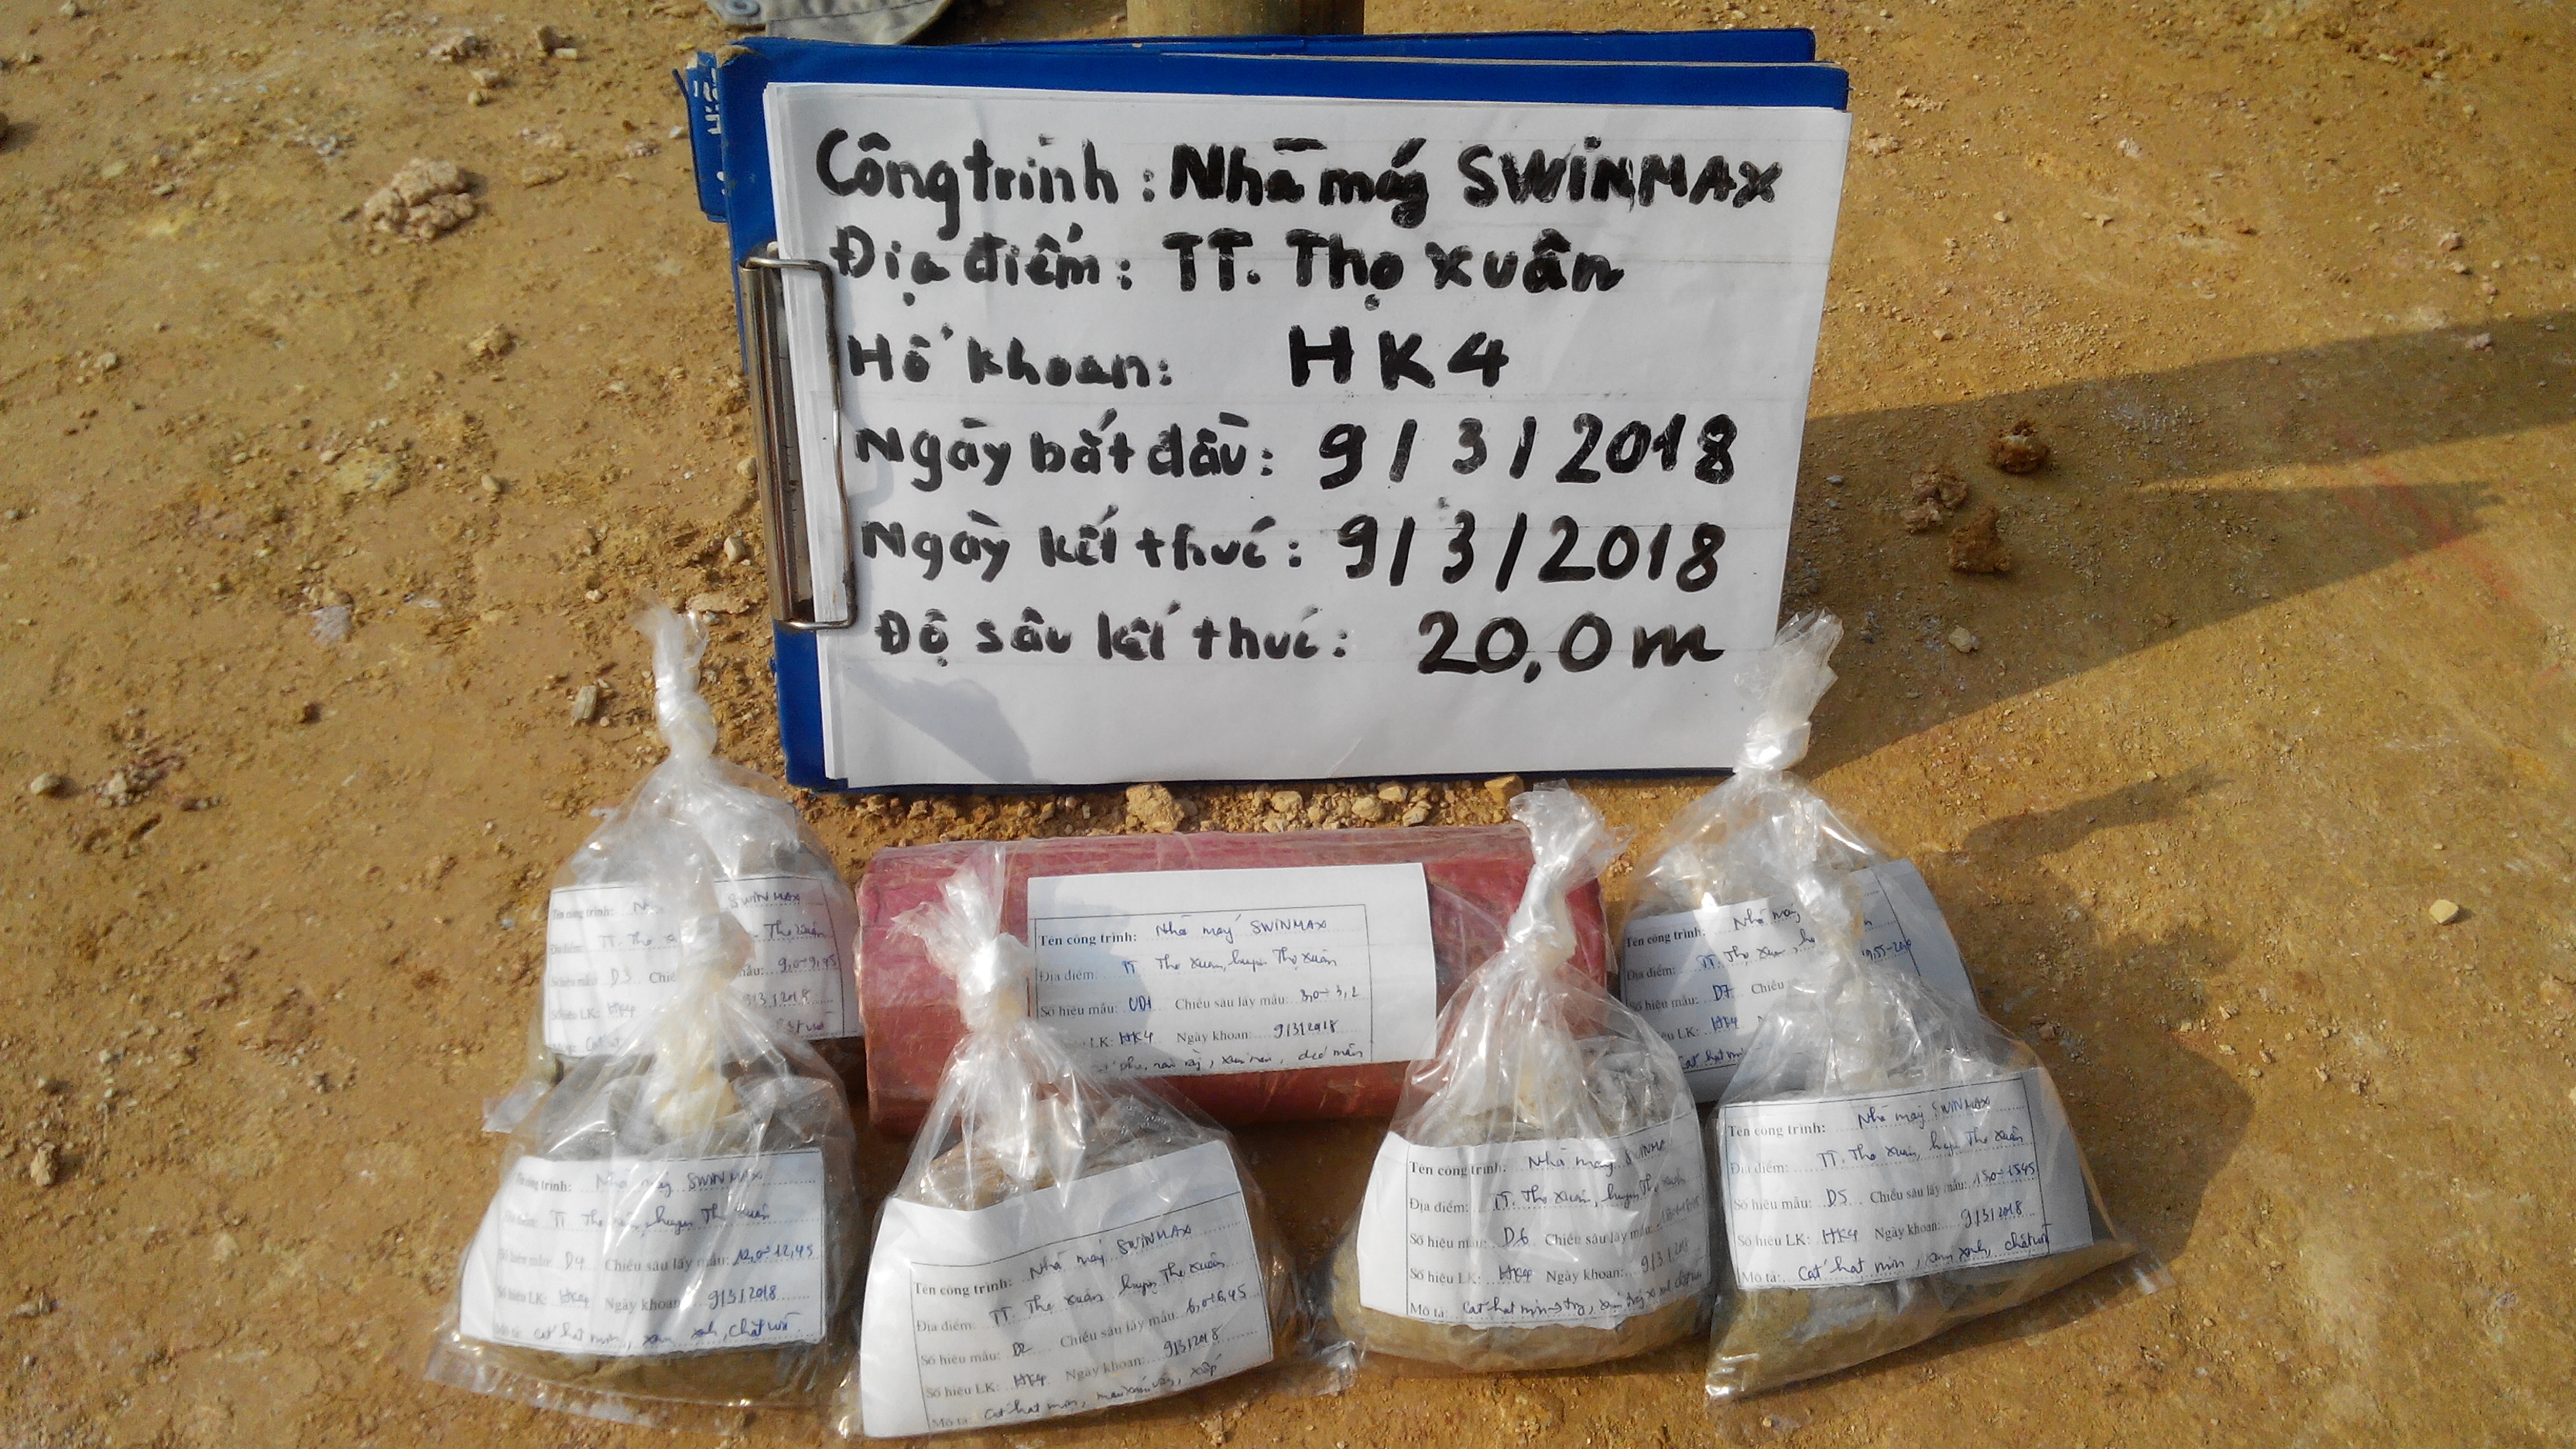 Công trình : Nhà máy SWINMAX
Địa điểm : TT. Thọ Xuân
Hố khoan: HK4
Ngày bắt đầu : 9/3/2018
Ngày kết thúc : 9/3/2018
Độ sâu kết thúc : 20,0 m
Tên công trình: SWINMAX
TT. Thọ Thọ Xuân
Số hiệu mẫu: D3 mẫu: 9,0÷9,45
Số hiệu LK: HK4 9/3/2018
Tên công trình: Nhà máy SWINMAX
Địa điểm: TT Thọ Xuân, huyện Thọ Xuân
Số hiệu mẫu: UD1 Chiều sâu lấy mẫu: 3,0÷3,2
LK: HK4 Ngày khoan: 9/3/2018
dẻo mềm
Tên công trình: Nhà máy
Địa điểm: TT. Thọ Xuân
Số hiệu mẫu: D7 Chiều
LK: HK4
Cát hạt mịn
Nhà máy SWINMAX
TT Thọ Xuân, huyện Thọ Xuân
Số hiệu mẫu: D4 Chiều sâu lấy mẫu: 12,0÷12,45
Số hiệu LK: HK4 Ngày khoan: 9/3/2018
Mô tả: Cát hạt mịn, xám xanh, chặt vừa
Tên công trình: Nhà máy SWINMAX
Địa điểm: TT. Thọ Xuân huyện Thọ Xuân
Số hiệu mẫu: D2 Chiều sâu lấy mẫu: 6,0÷6,45
Số hiệu LK: HK4 Ngày khoan: 9/3/2018
Mô tả: Cát hạt mịn, xốp
Tên công trình: Nhà máy SWINMA
Địa điểm: TT. Thọ Xuân, huyện Thọ Xuân
Số hiệu mẫu: D6 Chiều sâu lấy mẫu:
Số hiệu LK: HK4 Ngày khoan: 9/3/201
Mô tả: Cát hạt mịn
Tên công trình: Nhà máy SWINMAX
Địa điểm: TT. Thọ Xuân, huyện Thọ Xuân
Số hiệu mẫu: D5 Chiều sâu lấy mẫu: 15,0÷15,45
Số hiệu LK: HK4 Ngày khoan: 9/3/2018
Mô tả: Cát hạt mịn, xám xanh, chặt vừa